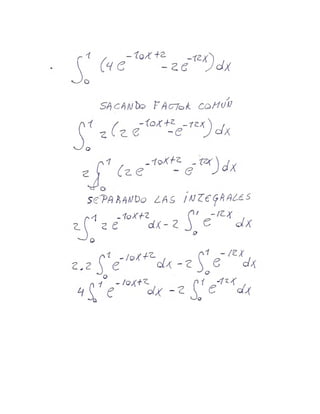 . ∫₀¹ (4e^{-10x+2} - 2e^{-12x}) dx
SACANDO FACTOR COMÚN
∫₀¹ 2(2e^{-10x+2} - e^{-12x}) dx
2∫₀¹ (2e^{-10x+2} - e^{-12x}) dx
SEPARANDO LAS INTEGRALES
2∫₀¹ 2e^{-10x+2} dx - 2∫₀¹ e^{-12x} dx
2.2∫₀¹ e^{-10x+2} dx - 2∫₀¹ e^{-12x} dx
4∫₀¹ e^{-10x+2} dx - 2∫₀¹ e^{-12x} dx